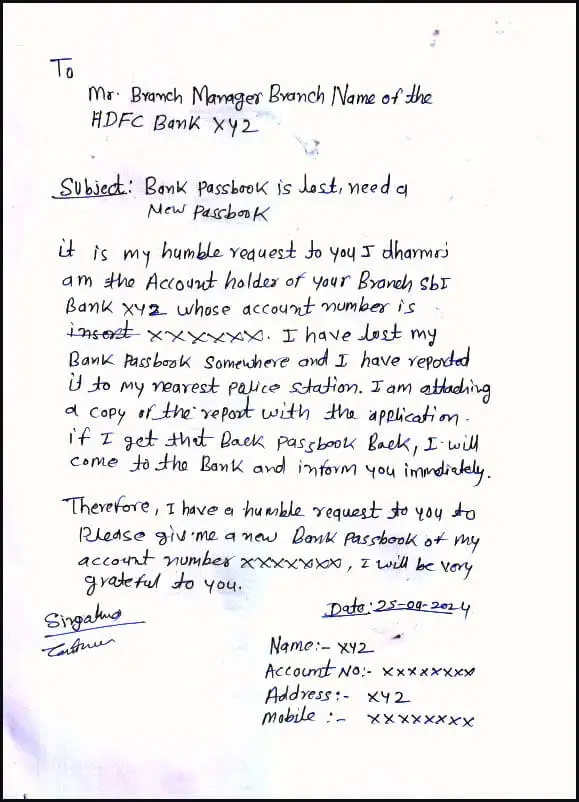 To
Mr. Branch Manager Branch Name of the
HDFC Bank XYZ
Subject: Bank Passbook is lost, need a
New Passbook
it is my humble request to you I dharmoj
am the Account holder of your Branch SbI
Bank XYZ whose account number is
insert XXXXXXX. I have lost my
Bank Passbook somewhere and I have reported
it to my nearest police station. I am attaching
a copy of the report with the application.
if I get that Back passbook Back, I will
come to the Bank and inform you immediately.
Therefore, I have a humble request to you to
Please give me a new Bank Passbook of my
account number XXXXXXX, I will be very
grateful to you.
Date: 25-09-2024
Name:- XYZ
Account No:- XXXXXXXX
Address:- XYZ
Mobile :- XXXXXXXX